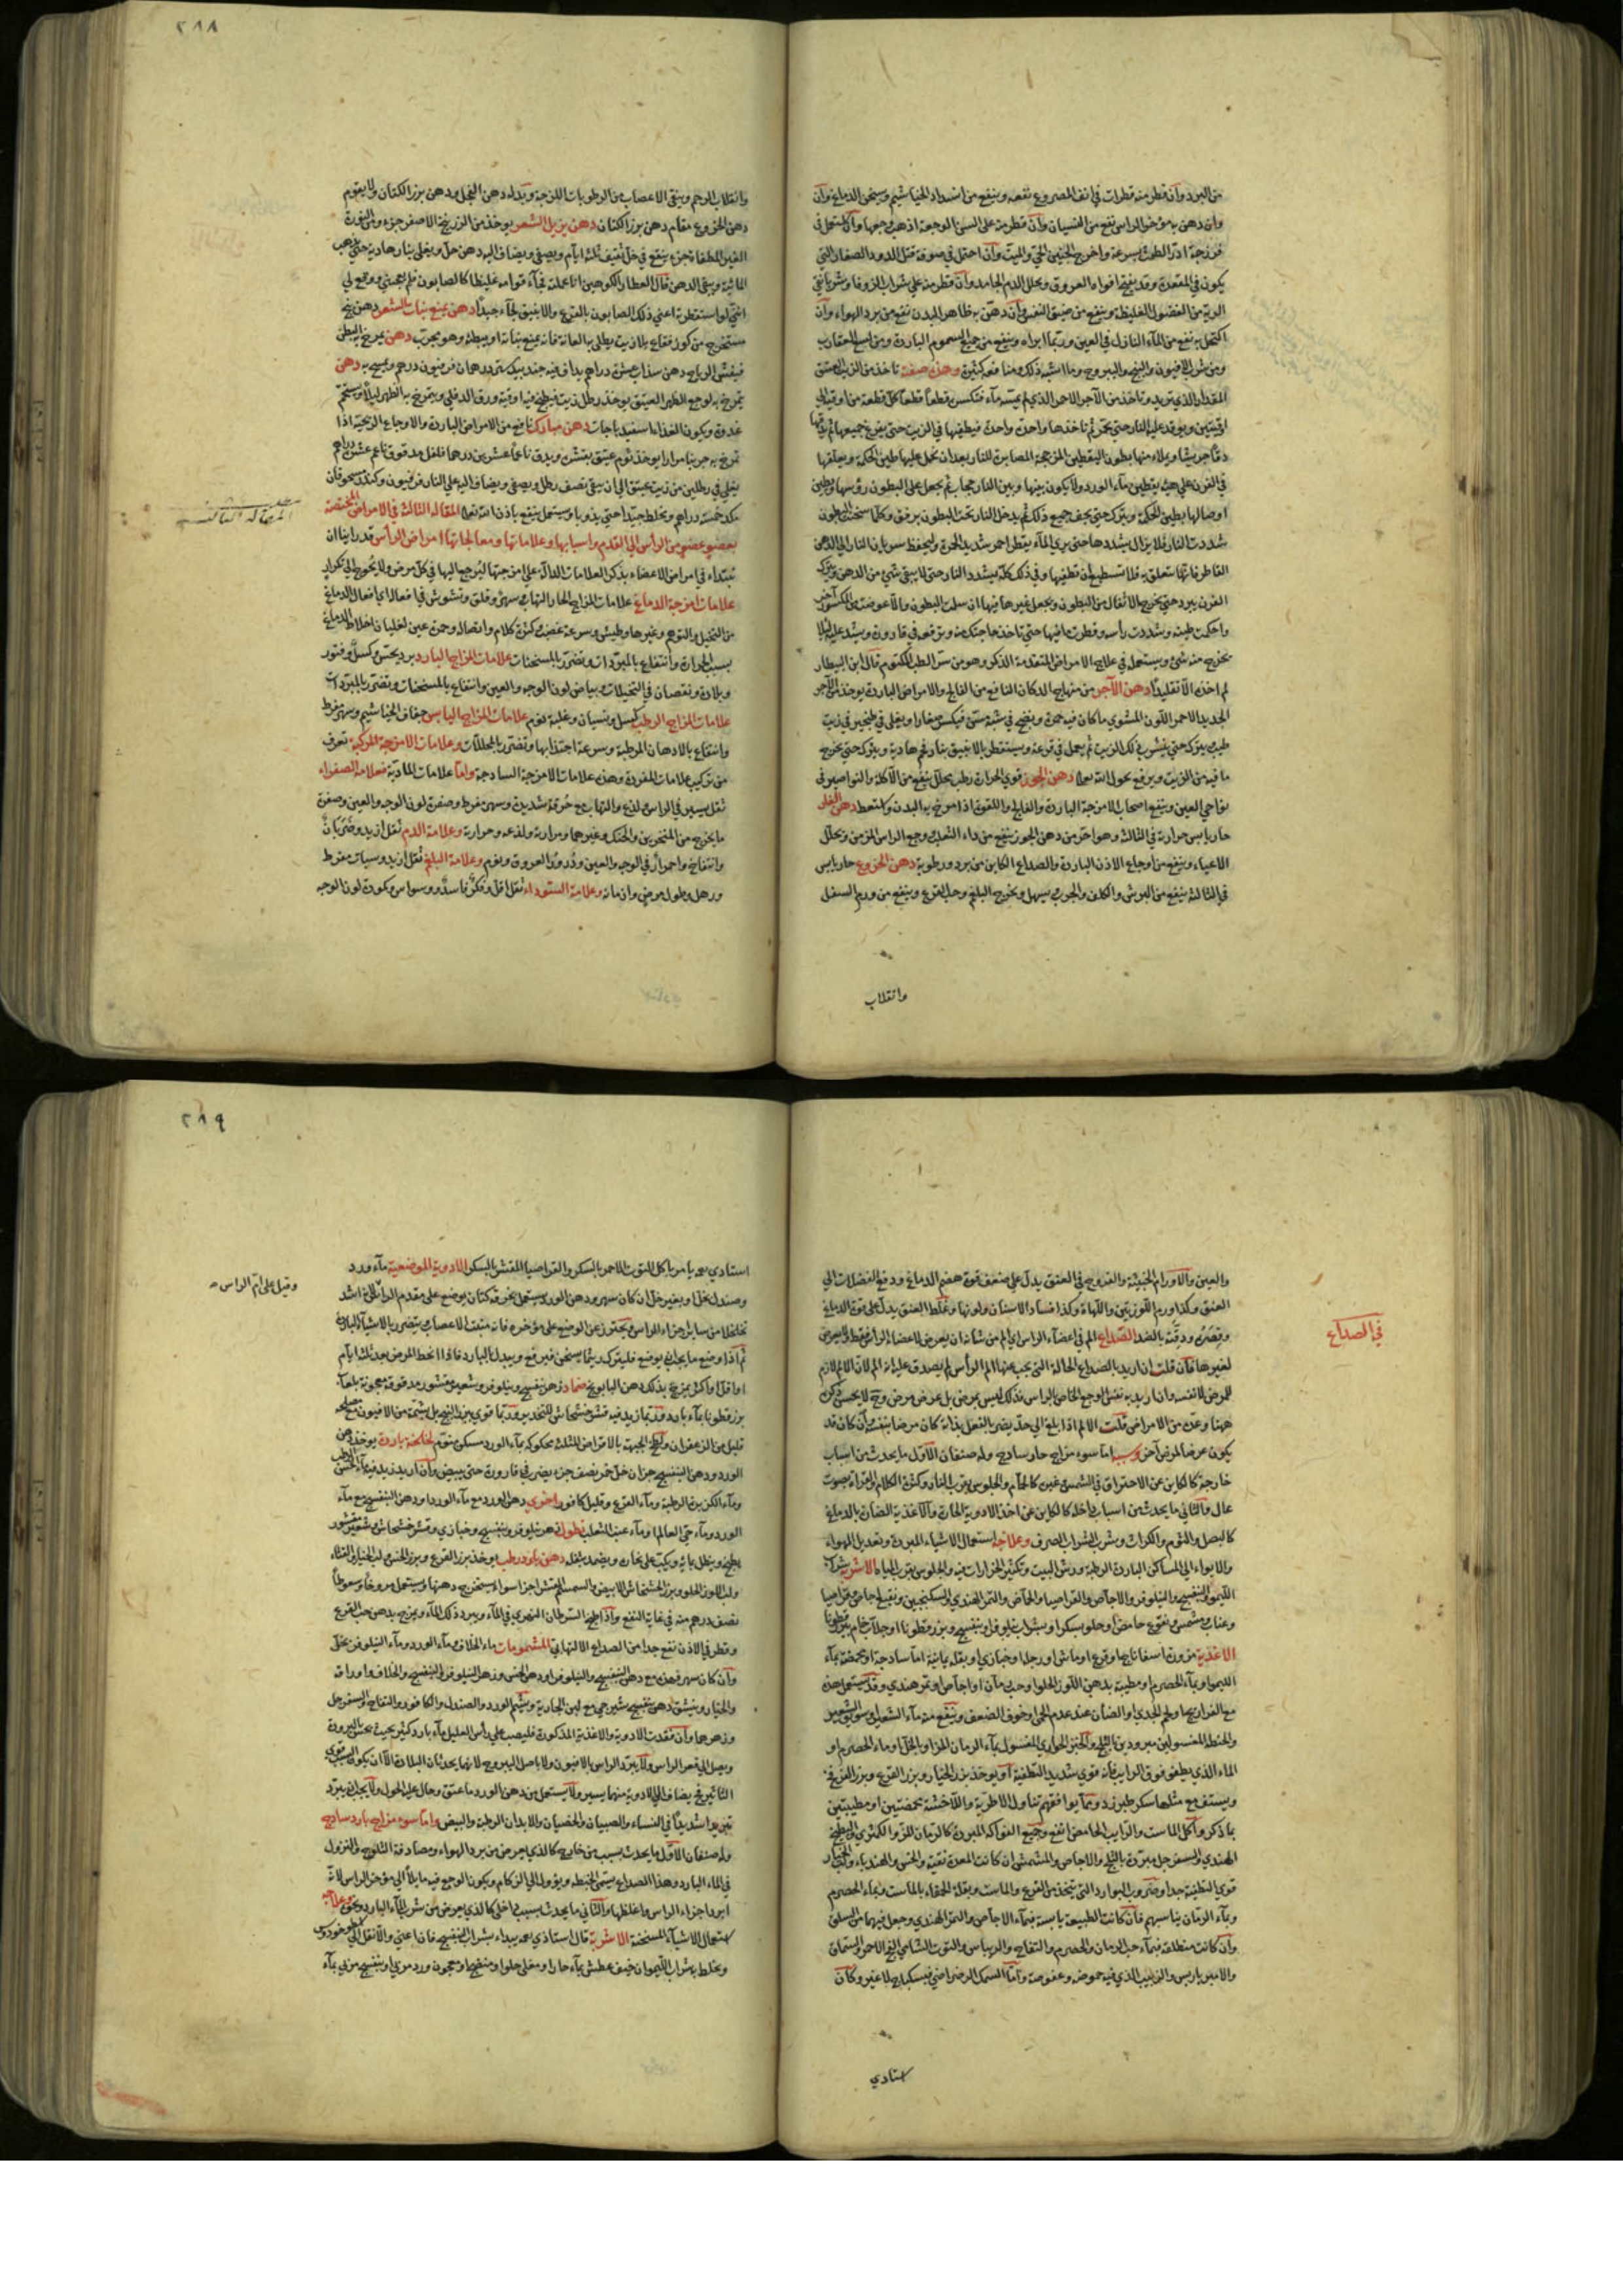 ٢٨٨
من البرد وان قطر منه قطرات في انف المصروع نفعه وينفع من انسداد الخياشيم ويسخن الدماغ وان
وان دهن به مؤخر الراس نفع من النسيان وان قطر منه على السن الوجعة اذهب وجعها وان احتمل في
فرزجة ادر الطمث بسرعة واخرج الجنين الحي والميت وان احتمل في صوفة قتل الدود الصغار التي
يكون في المقعدة وقد يفتح افواه العروق ويحلل الدم الجامد وان قطر منه على شراب الزوفا وشرب نقى
الرية من الفضول الغليظة وينفع من ضيق النفس وان دهن به ظاهر البدن نفع من برد الهواء وان
اكتحل به نفع من الماء النازل في العين وربما ابراه وينفع من جميع السموم الباردة ومن لسع العقارب
ومن شرب الافيون والبنج واليبروح وما اشبه ذلك ومنافعه كثيرة وهذه صفته تاخذ من الزيت العتيق
المقدار الذي تريد وتاخذ من الآجر الاحمر الذي لم يمسه ماء فتكسر قطعا قطعا كل قطعة من اوقية الى
اوقيتين ويوقد عليه النار حتى يحمر ثم تاخذها واحدة واحدة فيطفيها في الزيت حتى يفرغ جميعها ثم يدقها
دقا جريشا ويملاء منها بطون اليقطين المزججة المصابرة للنار بعد ان تحمل عليها طين الحكمة ويعلقها
في الفرن على هيئة يقطين ماء الورد ولا يكون بينها وبين النار حجاب ثم يجعل على البطون رؤسها ويطين
اوصالها بطين الحكمة ويترك حتى يجف جميع ذلك ثم يدخل النار تحت البطون برفق وكلما سخنت البطون
شددت النار فلا يزال يشددها حتى يرى الماء يقطر احمر شديد الحمرة وليحفظ من ان النار الى الدهن
القاطر فانها تتعلق به فلا تستطيع ان تطفيها وفي ذلك كله يشدد النار حتى لا يبقى شي من الدهن ويترك
الفرن يبرد حتى يخرج الاثفال من البطون ويجعل غيرها فيها ان سلمت البطون والا عوضته من المكسور اخر
واحكمت طينه وشددت رأسه وقطرت ما فيها حتى تاخذ حاجتك منه وترفعه في قارورة ويشد عليه لئلا
يخرج منه شئ ويستعمل في علاج الامراض المتقدمة الذكر وهو من سر الطب المكتوم قال ابن البيطار
لم اخذه الا تقليدا دهن الآجر من منهاج الدكان النافع من الفالج والامراض الباردة يوخذ من الآجر
الجديد الاحمر اللون المشوي ما كان فيه حمرة ونضج في شبه ستي فيكسر صغارا ويغلى في طنجير في زيت
طيب يترك حتى ينشف ذلك الزيت ثم يحمل في قرعة ويستقطر بالانبيق بنار فحم هادية ويترك حتى يخرج
ما فيه من الزيت ويرفع بحول الله تعالى دهن الجوز قوي الحرارة رطب يحلل ينفع من الآكلة والنواصير في
نواحي العين وينفع اصحاب الامزجة الباردة والفالج واللقوة اذا مرخ به البدن وكلتعط دهن الغار
حار يابس حرارته في الثالثة وهو احر من دهن الجوز ينفع من داء الثعلب ووجع الراس المزمن ويحلل
الاعياء وينفع من اوجاع الاذن الباردة والصداع الكاين من برد ورطوبة دهن الخروع حار يابس
في الثالثة ينفع من البرش والكلف والجرب يسهل ويخرج البلغم وحب القرع وينفع من ورم السفل
وانقلاب
وانقلاب الرحم وينقي الاعصاب من الرطوبات اللزجة وبداء دهن الفجل ودهن بزر الكتان ولا يقوم
دهن الخروع مقام دهن بزر الكتان دهن يزيل الشعر يوخذ من الزرنيخ الاصفر جزء ومن النورة
الغير المطفاة جزء ينقع في خل ثقيف ثلثة ايام ويصفى ويضاف اليه دهن حل ويغلى بنار هادية حتى يذهب
المائية ويبقى الدهن قال العطار الكوهين انا عملته فجاء قوامه غليظا كالصابون فلم يعجبني ووقع لي
انني لو استقطرته اعني ذلك الصابون بالقرع والانبيق لجاء جيدا دهن يمنع نبات الشعر دهن بنج
مستخرج من كوز فقاع بلا زيت يطلى به العانة فانه يمنع نباته او يبطئه وهو مجرب دهن يمرخ به البطن
فيفش الرياح دهن سذاب عشرة دراهم يداف فيه جندبيدستر درهمان فرفيون درهم ويمسح به دهن
يمرخ به لوجع الظهر العتيق يوخذ رطل زيت فيطبخ فيه اوقية ورق الدفلى ويتمرخ به الظهر ليلا ويستحم
غدوة ويكون الغذاء اسفيدباجات دهن مبارك نافع من الامراض الباردة والاوجاع الريحية اذا
تمرخ به جربناه مرارا يوخذ ثوم عتيق يقشر ويدق ناعما عشرين درهما فلفل مدقوق ناعم عشرة دراهم
يغلى في رطلين من زيت عتيق الى ان يبقى نصف رطل ويصفى ويضاف اليه على النار فرفيون وكندر مسحوقان
كل خمسة دراهم ويخلط جيدا حتى يذوبا ويستعمل ينفع باذن الله تعالى المقالة الثالثة في الامراض المختصة
بعضو عضو من الرأس الى القدم واسبابها وعلاماتها ومعالجاتها امراض الرأس قد راينا ان
نبتداء في امراض الاعضاء بذكر العلامات الدالة على امزجتها ليرجع اليها في كل مرض ولا يحوج الى تكرار
علامات امزجة الدماغ علامات المزاج الحار التهاب سهر وقلق وتشوش في افعاله اي افعال الدماغ
من التخيل والتوهم وغيرها وطيش وسرعة غضب وكثرة كلام واتصاله وحمرة عين لغليان اخلاط الدماغ
بسبب الحرارة وانتفاع بالمبردات وتضرر بالمسخنات علامات المزاج البارد برد يحس وكسل وفتور
وبلادة ونقصان في التخيلات وبياض لون الوجه والعين وانتفاع بالمسخنات وتضرر بالمبردات
علامات المزاج الرطب كسل ونسيان وغلبة نوم علامات المزاج اليابس جفاف الخياشيم وسهر مفرط
وانتفاع بالادهان المرطبة وسرعة اجتذابها وتضرر بالمحللات وعلامات الامزجة المركبة تعرف
من تركيب علامات المفردة وهذه علامات الامزجة الساذجة واما علامات المادية فعلامة الصفراء
ثقل يسير في الراس لذع والتهاب مع حرقة شديدة وسهر مفرط وصفرة لون الوجه والعين وصفرة
ما يخرج من المنخرين والحنك وغيرهما ومرارته ولذعه وحرارته وعلامة الدم ثقل ازيد وضربان
وانتفاخ واحمرار في الوجه والعين ودرور العروق ونوم وعلامة البلغم ثقل ازيد وسبات مفرط
ورهل وطول مرض وازمانه وعلامة السوداء ثقل اقل وفكر فاسد ووسواس وكمودة لون الوجه
المقالة الثالثة
٢٨٩
والعين والاورام الخبيثة والقروح في العنق يدل على ضعف قوة هضم الدماغ ودفع الفضلات الى
العنق وكذا ورم اللوزتين واللهاة وكذا فساد الاسنان ولونها وغلظ العنق يدل على قوة الدماغ
وقصره ودقته بالضد الصداع الم في اعضاء الراس اي الم من شانه ان يعرض لاعضاء الراس فقط ولا يعرض
لغيرها فان قلت ان اريد بالصداع الحالة التي يجب عنها الم الرأس لم يصدق عليه انه الم لان الالم لازم
للمرض لا نفسه وان اريد به نفس الوجع الخاص بالراس فذلك ليس بمرض بل عرض مرض وح لا يحسن ذكره
ههنا وعده من الامراض قلت الالم اذا بلغ الى حد يضر بالفعل بذاته كان مرضا بنفسه وان كان قد
يكون عرضا لمرض آخر وسببه اما سوء مزاج حار ساذج وله صنفان الاول ما يحدث من اسباب
خارجة كالكاين عن الاحتراق في الشمس عن كالحمام والجلوس بقرب النار وكثرة الكلام والقراءة بصوت
عال والثاني ما يحدث من اسباب داخلة كالكاين عن اخذ الادوية الحارة والاغذية الضارة بالدماغ
كالبصل والثوم والكراث وشرب الشراب الصرف وعلاجه استعمال الاشياء المبردة وتعديل الهواء
والايواء الى المساكن الباردة الرطبة ورش البيت وتكثير الخرارات فيه والجلوس بقرب المياه الاشربة شراب
الليمو والبنفسج والنيلوفر والاجاص والقراصيا والحماض والتمر الهندي والسكنجبين ونقيع اجاص وقراصيا
وعناب ومشمس ونقوع حامض او حلو بسكر او بشراب نيلوفر او بنفسج وبزر قطونا او جلاب خام ببزر قطونا
الاغذية مزورة اسفاناج او قرع او ماش او رجلة او خبازي او بقلة يمانية اما ساذجة او محمضة بماء
الليمو او بماء الحصرم او مطيبة بدهن اللوز الحلو او حب رمان او اجاص او تمر هندي وقد يستعمل هذه
مع الفراريج او لحم الجدي او الضان عند عدم الحمى وخوف الضعف وينفع منه ماء الشعير او سويق الشعير
والحنطة المغسولين مبردين بالثلج والخبز الحواري المغسول بماء الرمان المز او الخل او ماء الحصرم او
الماء الذي يطفو فوق الرايب فانه قوي شديد التطفية او يوخذ بزر الخيار وبزر القرع وبزر الفرفخ
ويستف مع مثلها سكر طبرزد وربما يوافقهم تناول الاطرية واللاخشة محمضتين او مطيبتين
بما ذكر واكل الماست والرايب الحامض انفع وجميع الفواكه المبردة كالرمان المز والكمثرى والبطيخ
الهندي والسفرجل مبردة بالثلج والاجاص والمشمش ان كانت المعدة نقية والخس والهندباء ولب الخيار
قوي التطفية جدا وضروب البوارد التي يتخذ من القرع والماست وبقلة الحمقاء بالماست وبماء الحصرم
وبماء الرمان يناسبهم فان كانت الطبيعة يابسة فبماء الاجاص والتمر الهندي وجعل فيهما من السلق
وان كانت منطلقة فبماء حب الرمان والحصرم والتفاح والريباس والتوت الشامي الفج الاحمر والسماق
والامبرباريس والزبيب الذي فيه حموضة وعفوصة واما السمك الرضراضي فبسكباج لا غير وكان
استادي
في الصداع
استادي رحمه يامر باكل التوت الاحمر بالسكر والقراصيا المقشر بالسكر الادوية الموضعية ماء ورد
وصندل بخل او بغير خل ان كان سهر ودهن الورد يستعمل بخرقة كتان يوضع على مقدم الراس لانه اشد
تخلخلا من ساير اجزاء الراس ويحترز عن الوضع على مؤخره فانه منبت الاعصاب يتضرر بالاشياء الباردة
ثم اذا وضع ما يجب ان يوضع فليترك ريثما يسخن فيرفع ويبدل بالبارد فاذا انحط المرض بعد ثلثة ايام
او اقل او اكثر يمزج بذلك دهن البابونج ضماد زهر بنفسج ونيلوفر وشعير مقشور مدقوقة معجونة بلعاب
بزر قطونا بماء بارد وربما زيد فيه قشر خشخاش للتخدير وربما قوي ببزر البنج بل بشمة من الافيون مصلحة
قليل من الزعفران ولطخ الجبهة بالاقراص المثلثة محكوكة بماء الورد مسكن منوم لخلخة باردة يوخذ دهن
الورد ودهن البنفسج جزآن خل خمر نصف جزء يضرب في قارورة حتى يبيض وان اريد زيد فيه ماء الخس
وماء الكزبرة الرطبة وماء القرع وقليل كافور اخرى دهن الورد مع ماء الورد او دهن البنفسج مع ماء
الورد وماء حي العالم او ماء عنب الثعلب نطول زهر نيلوفر وبنفسج وخبازي وقشر خشخاش وشعير مقشور
يطبخ وينطل بمائه ويكب على بخاره ويضمد بثفله دهن بارد رطب يوخذ بزر القرع وبزر الخس ولب الخيار والقثاء
ولب اللوز الحلو وبزر الخشخاش الابيض والسمسم المقشر اجزاء سواء يستخرج دهنها ويستعمل مروخا وسعوطا
نصف درهم منه في غاية النفع واذا طبخ السرطان النهري في الماء ويبرد ذلك الماء ويمزج بدهن حب القرع
وقطر في الاذن نفع جدا من الصداع الالتهابي المشمومات ماء الخلاف وماء الورد وماء النيلوفر بخل
وان كان سهر فهذه مع دهن البنفسج والنيلوفر او دهن الخس وزهر النيلوفر والبنفسج والخلاف واوراقه
والخيار وينشق دهن بنفسج شيرجي مع لبن الجارية ويشم الورد والصندل والكافور والتفاح والسفرجل
وزهرهما وان فقدت الادوية والاغذية المذكورة فليصب على رأس العليل ماء بارد كثير بحيث يحس بالبرودة
ويصل الى قعر الراس ولا يبرد الراس بالافيون ولا باصل اليبروح لانهما يحدثان البلادة الا ان يكون السبب قوي
التاثير فح يضاف الى الادوية منهما يسير ولا يستعمل من دهن الورد ما عتق وحال عليه الحول ولا يجب ان يبرد
تبريدا شديدا في النساء والصبيان والخصيان والابدان الرطبة والبيض واما سوء مزاج بارد ساذج
وله صنفان الاول ما يحدث بسبب من خارج كالذي يعرض من برد الهواء ومصادفة الثلوج والنزول
في الماء البارد وهذا الصداع يسمى الخبطه ويؤول الى الزكام ويكون الوجع فيه مايلا الى مؤخر الراس لانه
ابرد اجزاء الراس واغلظها والثاني ما يحدث بسبب داخلي كالذي يعرض من شرب الماء البارد ونحوه وعلاجه
استعمال الاشياء المسخنة الاشربة قال استاذي رحمه يبداء بشراب البنفسج فان اغنى والا نقل الى اسطوخودس
ويخلط بشراب الليمو ان خيف عطش بماء حار او مغلى حلو او منضج او معجون ورد مربى او بنفسج مربى بماء
وقيل على ام الراس